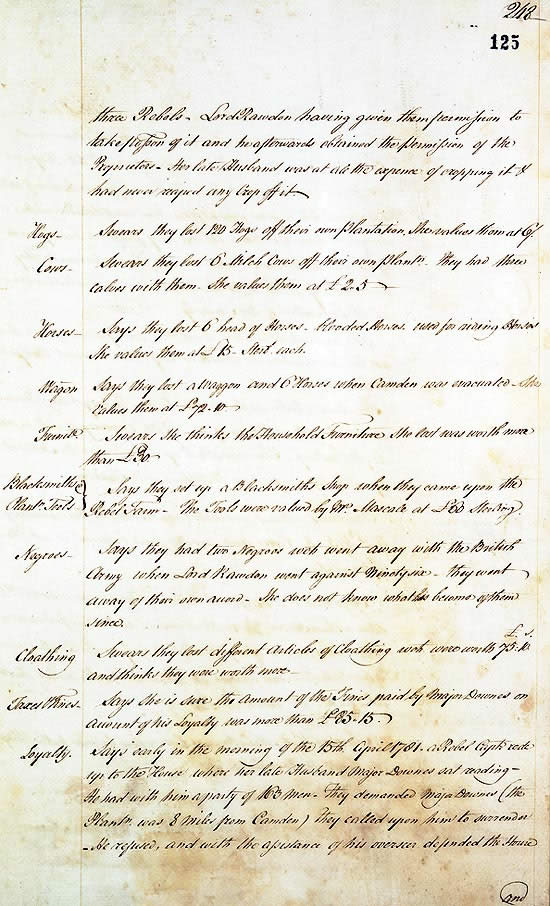 248
125
three Rebels - Lord Rawdon having given them permission to
take possion of it and he afterwards obtained the permission of the
Proprietors - Her late Husband was at all the expence of cropping it &
had never reaped any Crop off it
Hogs - Swears they lost 120 Hogs off their own Plantation. She values them at 6/.
Cows - Swears they lost 6 Milch Cows off their own Plantn. They had three
calves with them. She values them at £2.5
Horses - Says they lost 6 head of Horses - blooded Horses. used for riding Horses
She values them at £15 - Sterg. each.
Wagon Says they lost a Waggon and 6 Horses when Camden was evacuated - She
values them at £72.10
Furnite. Swears She thinks the Household Furniture She lost was worth more
than £30
Blacksmiths & Plantn. Tools
Says they set up a Blacksmiths Shop when they came upon the
Rebel Farm - The Tools were valued by Mr. Mascale at £60 Sterling.
Negroes - Says they had two Negroes wch went away with the British
Army when Lord Rawdon went against Ninety six - they went
away of their own accord - She does not know what is become of them
since.
Cloathing Swears they lost different Articles of Cloathing wch were worth £75.10 s.
and thinks they were worth more
Taxes & Fines - Says she is sure the Amount of the Fines paid by Major Downes on
account of his Loyalty was more than £85.15
Loyalty. Says early in the morning of the 15th April 1781. a Rebel Captn. rode
up to the House where her late Husband Major Downes sat reading -
He had with him a party of 163 men - They demanded Major Downes (the
Plantn. was 8 miles from Camden) They called upon him to surrender
- He refused, and with the assistance of his overseer defended the House
and